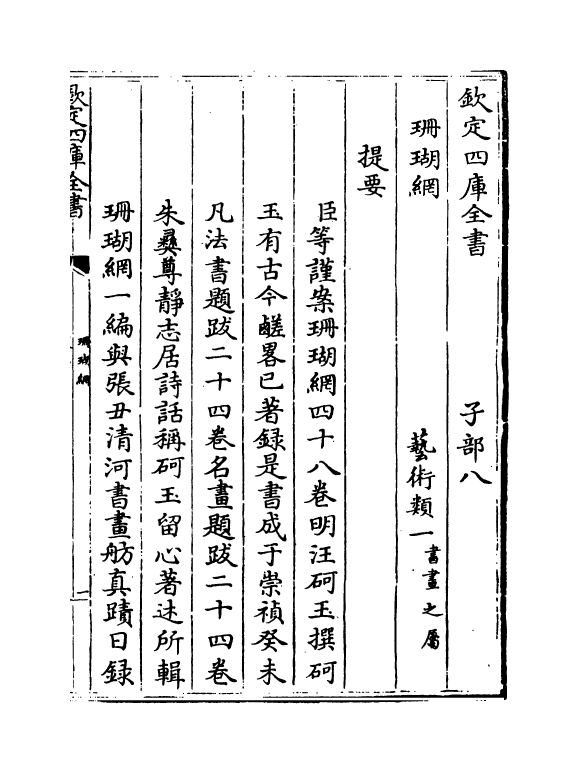 欽定四庫全書　子部八
珊瑚網　藝術類一書畫之屬
提要
臣等謹案珊瑚網四十八卷明汪砢玉撰砢
玉有古今鹺畧已著録是書成于崇禎癸未
凡法書題跋二十四卷名畫題跋二十四卷
朱彞尊靜志居詩話稱砢玉留心著述所輯
珊瑚網一編與張丑清河書畫舫真蹟日録
欽定四庫全書
珊瑚網
一